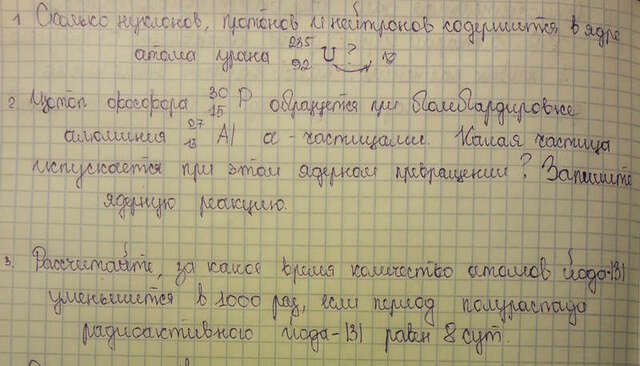 1 Сколько нуклонов, протонов и нейтронов содержится в ядре
атома урана 235 92 U?
2 Изотоп фосфора 30 15 P образуется при бомбардировке
алюминия 27 13 Al α-частицами. Какая частица
испускается при этом ядерном превращении? Запишите
ядерную реакцию.
3. Рассчитайте, за какое время количество атомов йода-131
уменьшится в 1000 раз, если период полураспада
радиоактивного йода-131 равен 8 сут.